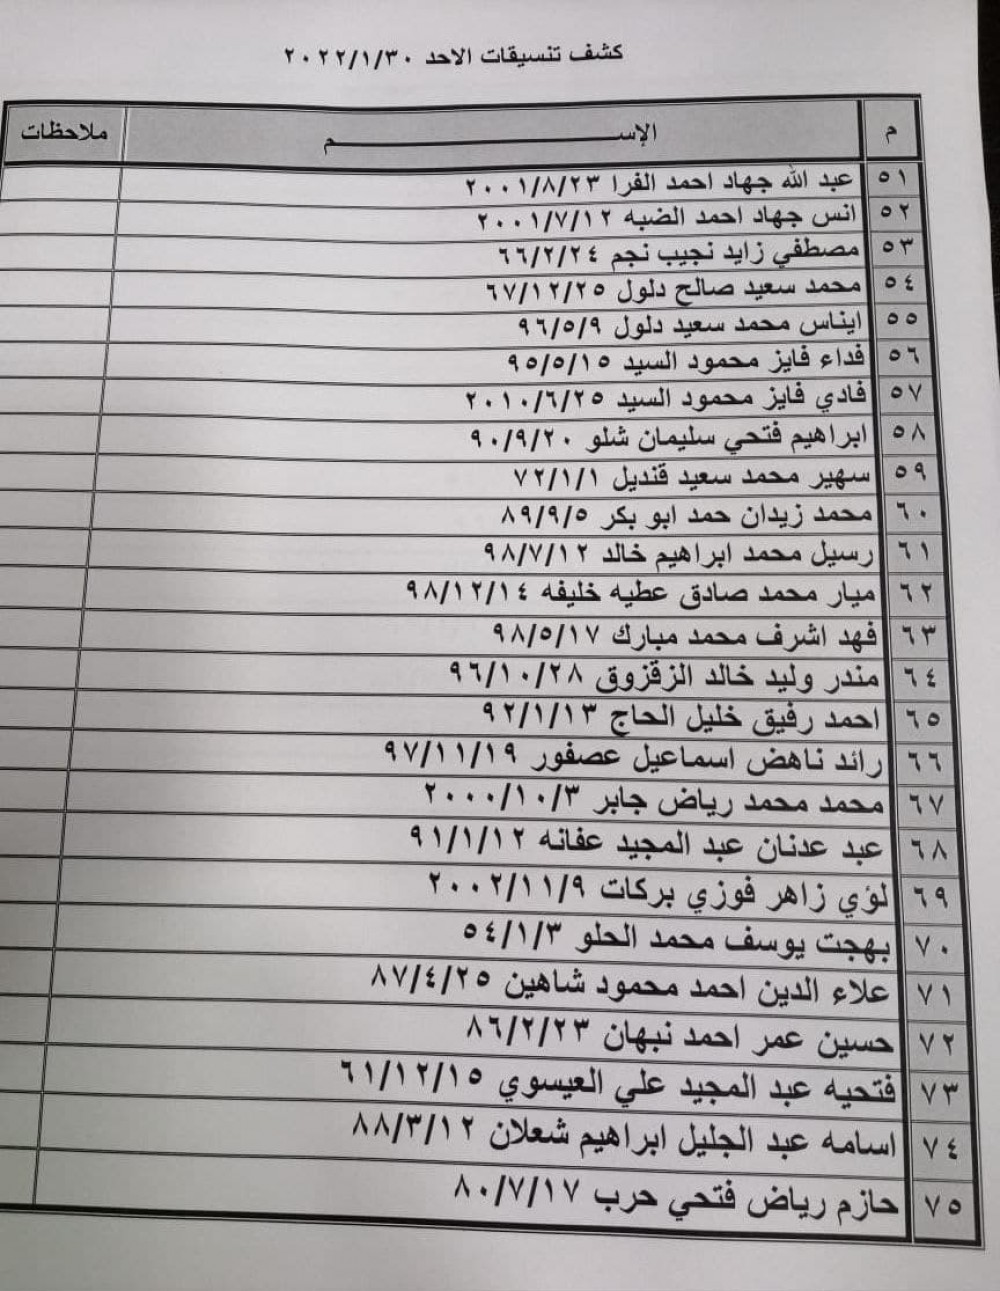 كشف تنسيقات الاحد ٢٠٢٢/١/٣٠
م الإســـــم ملاحظات
٥١ عبد الله جهاد احمد الفرا ٢٠٠١/٨/٢٣
٥٢ انس جهاد احمد الضبه ٢٠٠١/٧/١٢
٥٣ مصطفي زايد نجيب نجم ٦٦/٢/٢٤
٥٤ محمد سعيد صالح دلول ٦٧/١٢/٢٥
٥٥ ايناس محمد سعيد دلول ٩٦/٥/٩
٥٦ فداء فايز محمود السيد ٩٥/٥/١٥
٥٧ فادي فايز محمود السيد ٢٠١٠/٦/٢٥
٥٨ ابراهيم فتحي سليمان شلو ٩٠/٩/٢٠
٥٩ سهير محمد سعيد قنديل ٧٢/١/١
٦٠ محمد زيدان حمد ابو بكر ٨٩/٩/٥
٦١ رسيل محمد ابراهيم خالد ٩٨/٧/١٢
٦٢ ميار محمد صادق عطيه خليفه ٩٨/١٢/١٤
٦٣ فهد اشرف محمد مبارك ٩٨/٥/١٧
٦٤ منذر وليد خالد الزقزوق ٩٦/١٠/٢٨
٦٥ احمد رفيق خليل الحاج ٩٢/١/١٣
٦٦ رائد ناهض اسماعيل عصفور ٩٧/١١/١٩
٦٧ محمد محمد رياض جابر ٢٠٠٠/١٠/٣
٦٨ عبد عدنان عبد المجيد عفانه ٩١/١/١٢
٦٩ لؤي زاهر فوزي بركات ٢٠٠٢/١١/٩
٧٠ بهجت يوسف محمد الحلو ٥٤/١/٣
٧١ علاء الدين احمد محمود شاهين ٨٧/٤/٢٥
٧٢ حسين عمر احمد نبهان ٨٦/٢/٢٣
٧٣ فتحيه عبد المجيد علي العيسوي ٦١/١٢/١٥
٧٤ اسامه عبد الجليل ابراهيم شعلان ٨٨/٣/١٢
٧٥ حازم رياض فتحي حرب ٨٠/٧/١٧